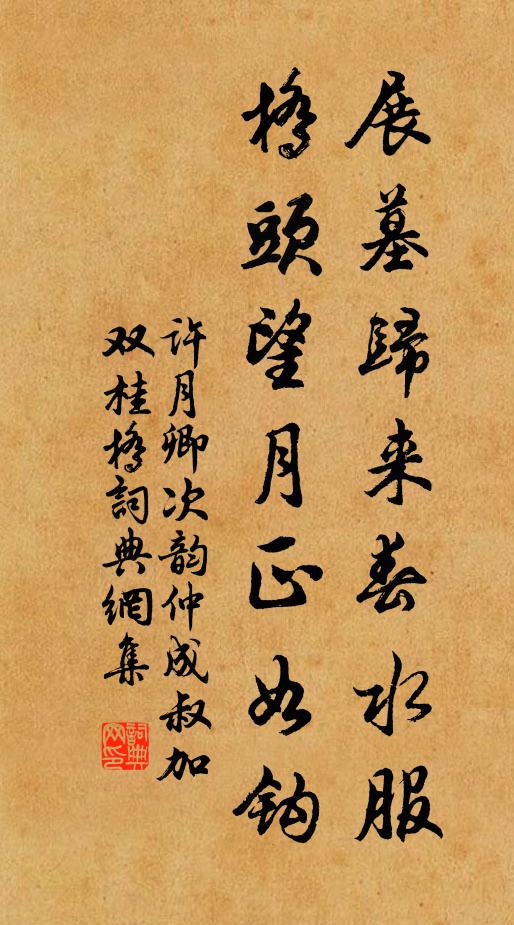 展墓歸来春水服
橋頭望月正如鈎
许月卿次韵仲成叔加
双桂橋詞典網集
詞典网印